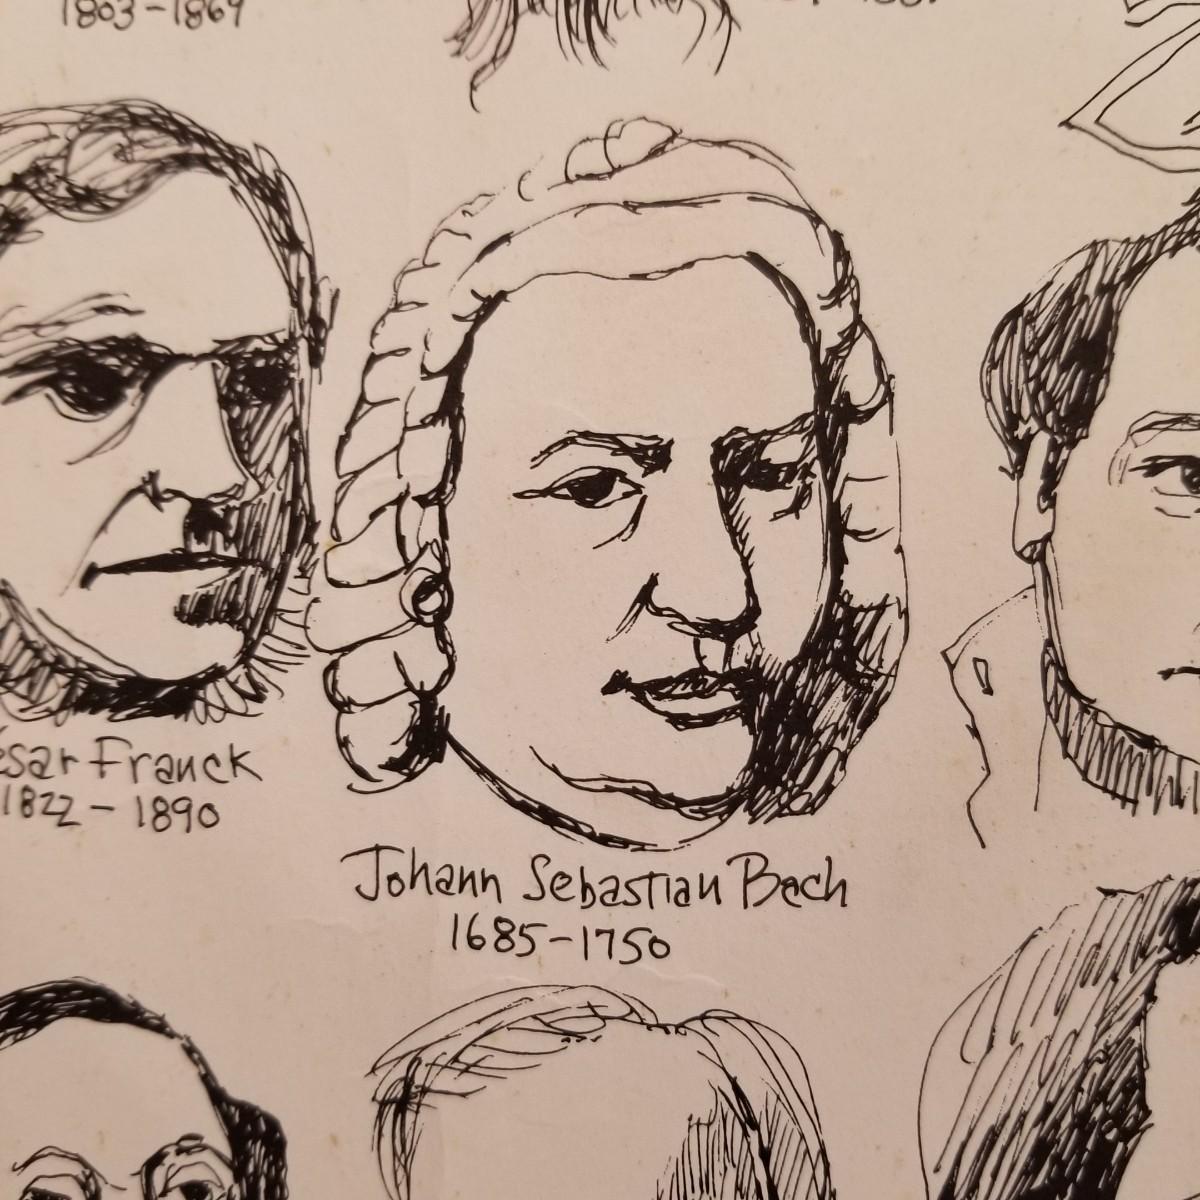 1803-1869
César Franck
1822 - 1890
Johann Sebastian Bach
1685-1750